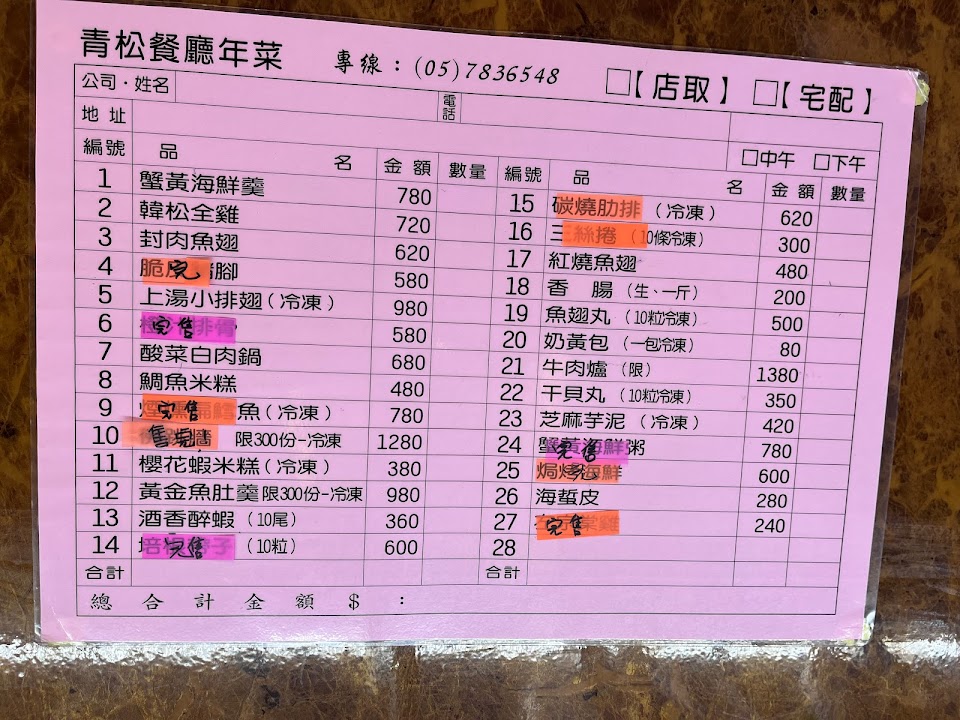 青松餐廳年菜 專線：(05)7836548 □【店取】 □【宅配】
公司·姓名 電話
地址
□中午 □下午
編號 品名 金額 數量
1 蟹黃海鮮羹 780
2 韓松全雞 720
3 封肉魚翅 620
4 脆 完 腳 580
5 上湯小排翅(冷凍) 980
6 完售 排骨 580
7 酸菜白肉鍋 680
8 鯛魚米糕 480
9 完售 魚(冷凍) 780
10 售完 牆 限300份-冷凍 1280
11 櫻花蝦米糕(冷凍) 380
12 黃金魚肚羹限300份-冷凍 980
13 酒香醉蝦(10尾) 360
14 培 完售 子 (10粒) 600
合計
編號 品名 金額 數量
15 碳燒肋排(冷凍) 620
16 三絲捲(10條冷凍) 300
17 紅燒魚翅 480
18 香腸(生、一斤) 200
19 魚翅丸(10粒冷凍) 500
20 奶黃包(一包冷凍) 80
21 牛肉爐(限) 1380
22 干貝丸(10粒冷凍) 350
23 芝麻芋泥(冷凍) 420
24 蟹黃海鮮粥 完售 780
25 焗烤海鮮 完 600
26 海蜇皮 280
27 完售 棠雞 240
28
合計
總合計金額$：